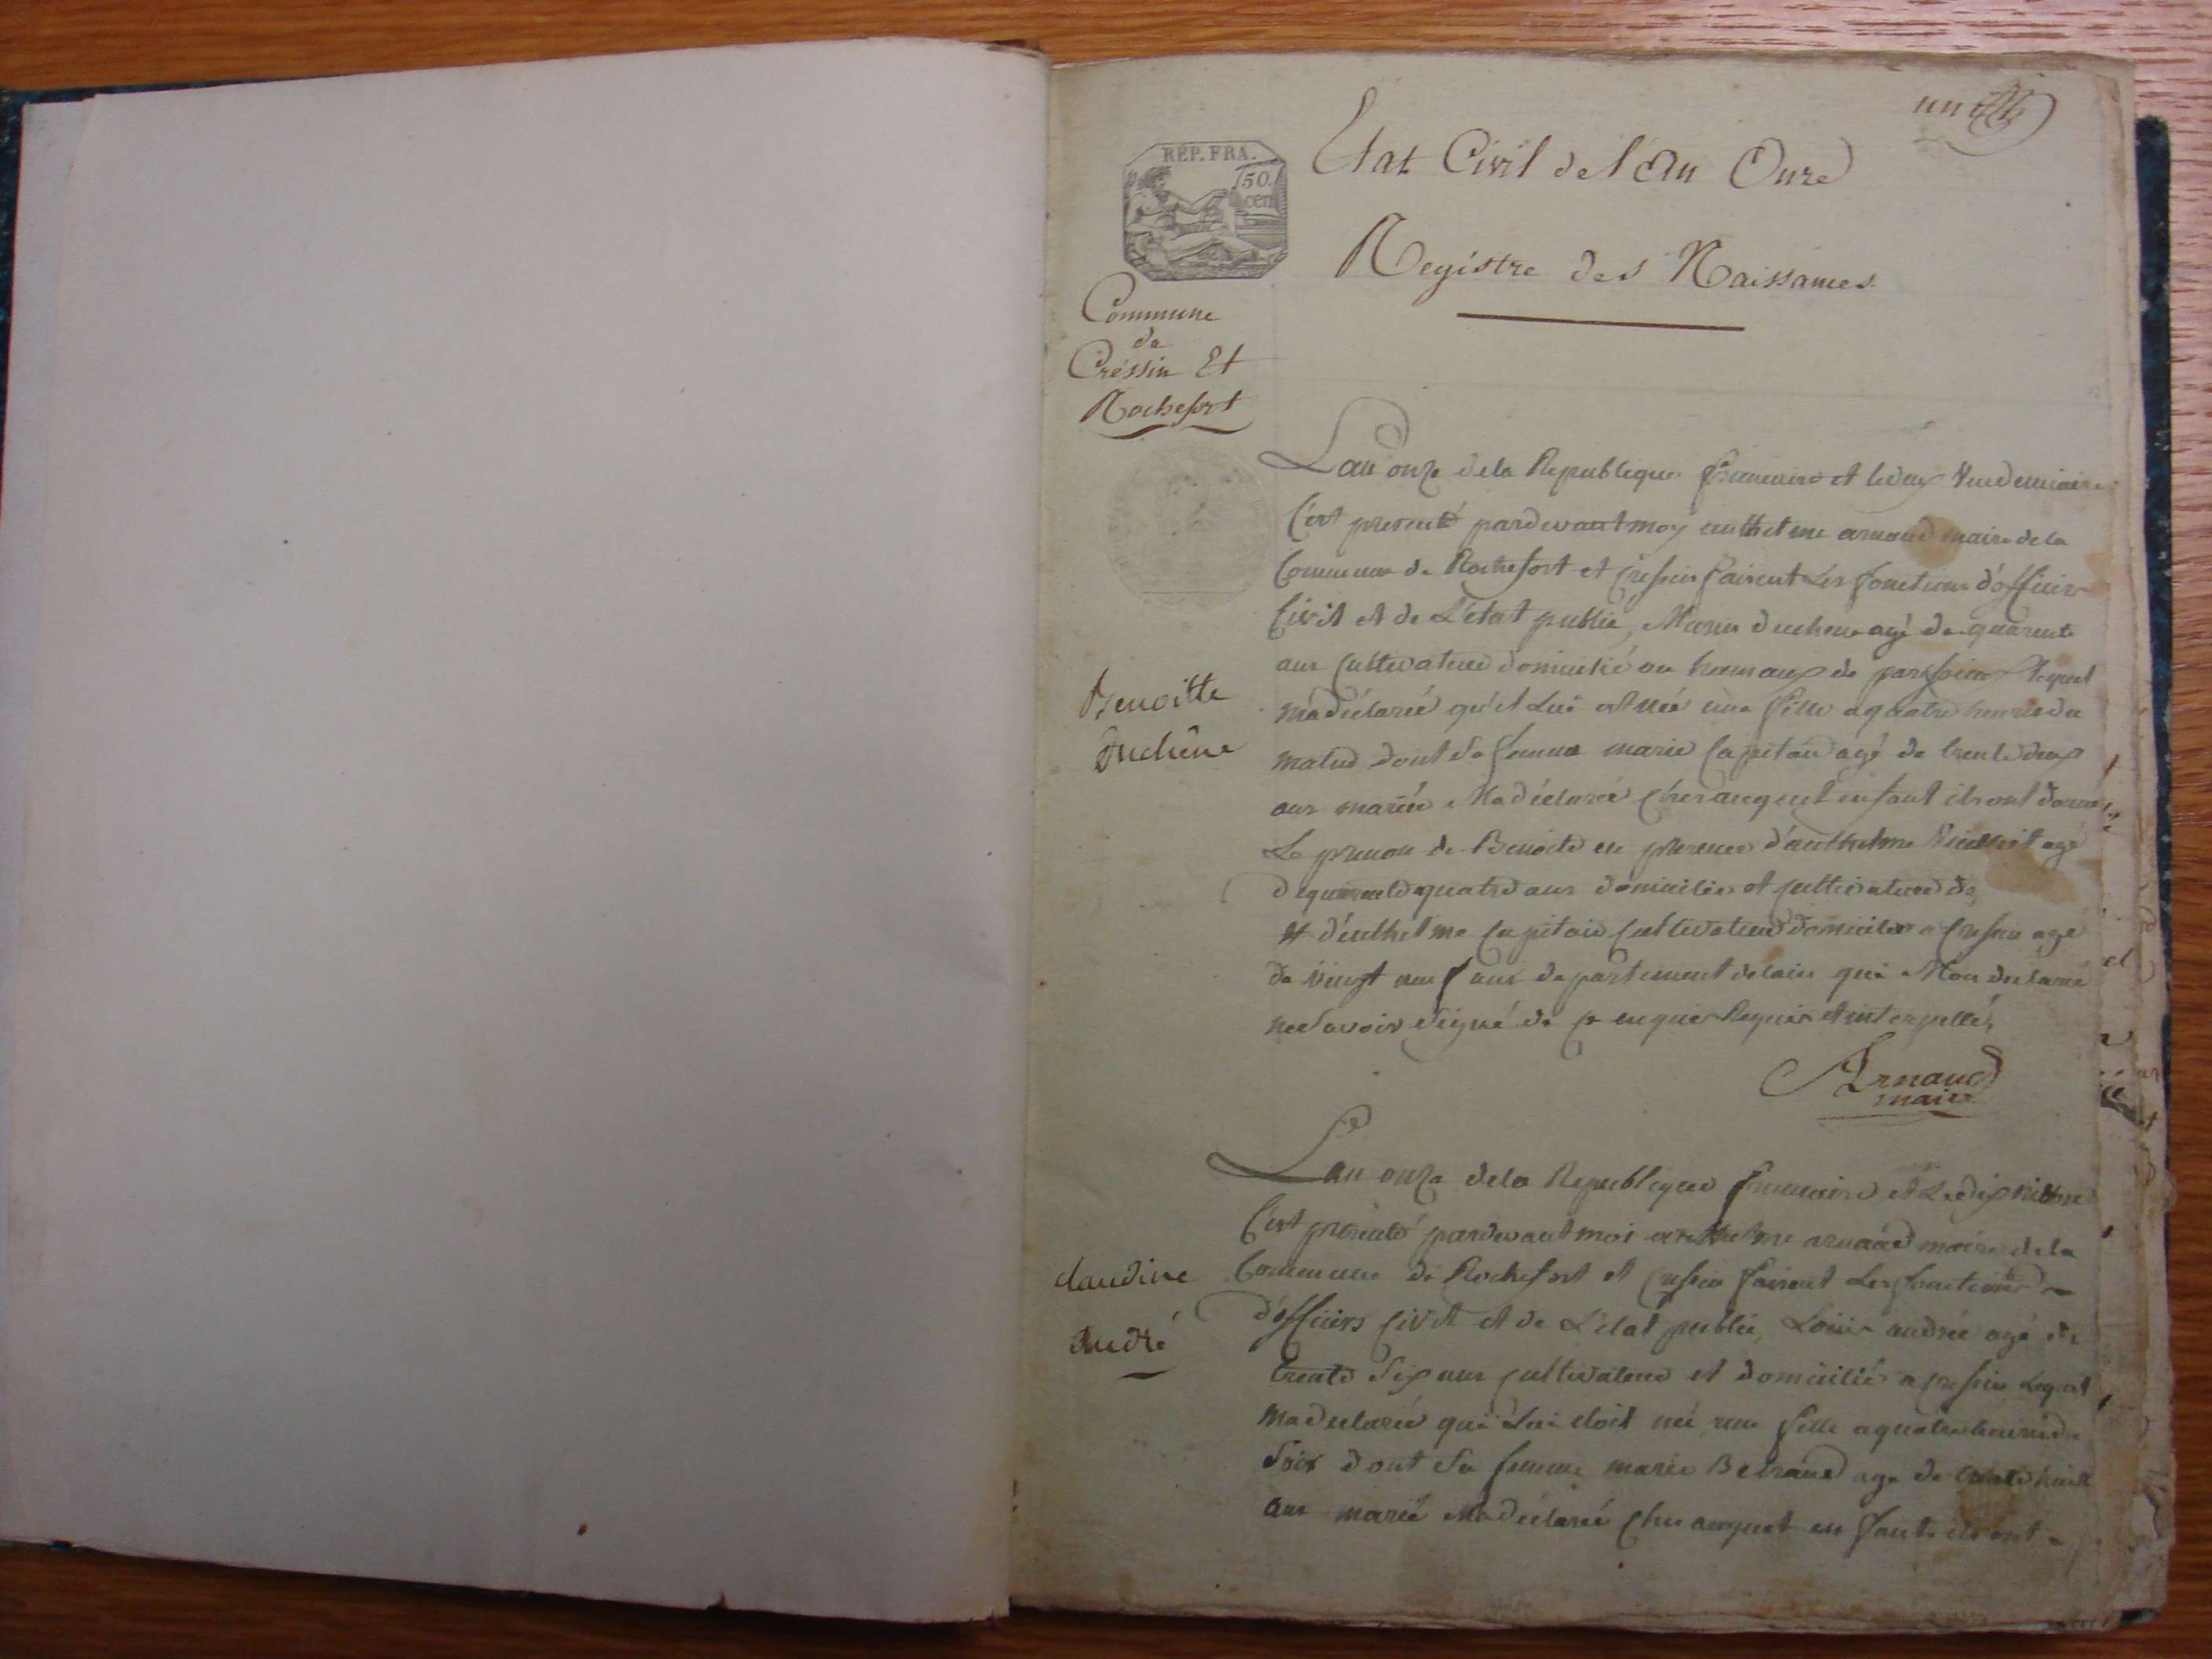 un
RÉP. FRA.
50.
cent
Etat Civil de l'An Onze
Registre des Naissances
Commune
de
Créssin Et
Rochefort
Lan onze dela Republique et le Vendemiaire
C'est presenté pardevant moy anthelme arnaud maire dela
Commune de Rochefort et Cressin faisent Les fonctions d'officier
Civil et de L'etat public, duchene agé de quarente
ans cultivateur domicilié au hameaux de lequel
ma déclarée qu'il Lui est née une fille a quatre heures du
matin dont sa femme marie Capitan agé de trente deux
ans mariée Ma déclarée auquel enfant ils ont donné
Le prenom de Benoite en presence d'anthelme agé
de quarente quatre ans domicilié et cultivateur de
et d'enthelme Capitan Cultivateur domicilié a Cressin agé
de vingt neuf ans departement delain qui Mon declaré
ne savoir signé de ce enquis Requis et interpellé,
Arnaud
maire
Benoitte
duchêne
Lan onze dela Republique et Le dix
C'est presenté pardevant moi anthelme arnaud maire dela
Commune de Rochefort et Cressin faisent Les fonctions
d'officiers Civil et de L'etat public, Louis andrée agé de
trente six ans cultivateur et domicilié a Cressin Lequel
ma declarée qui Lui etoit née une fille a quatre heures du
soir dont sa femme marie agé de trente huit
ans marié Ma déclarée auquel en fant ils ont
claudine
André